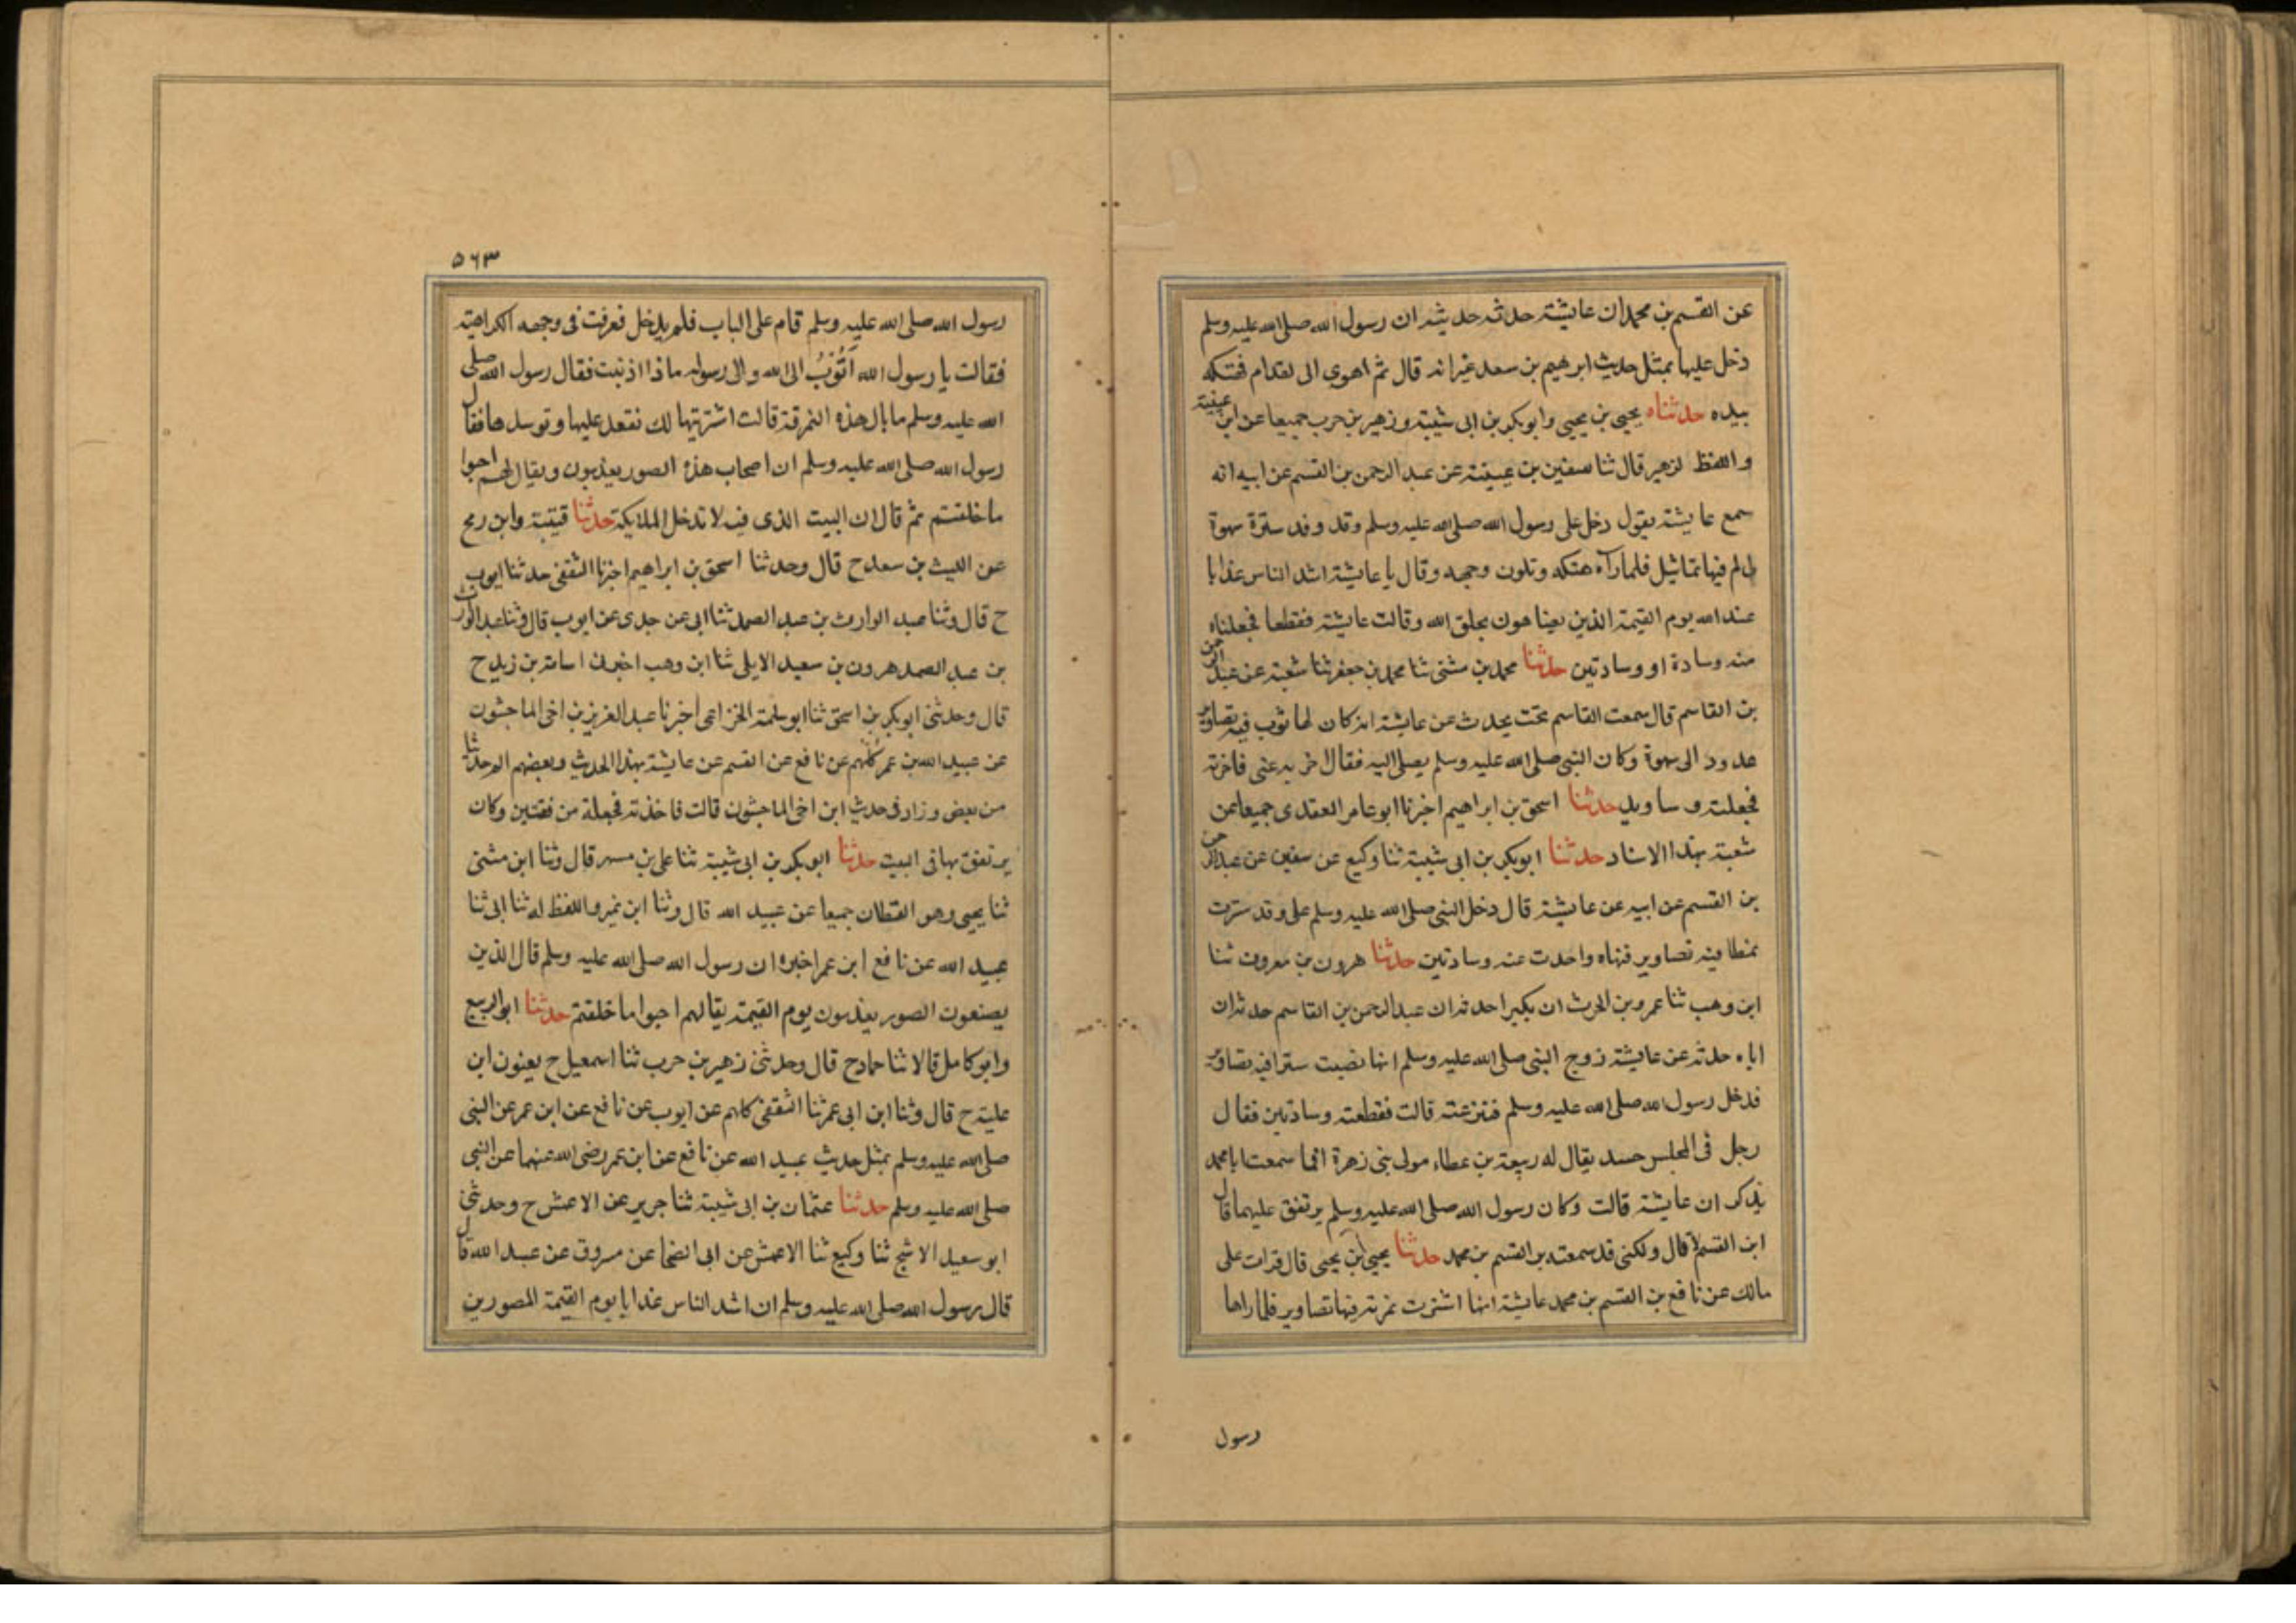 عن القسم بن محمد ان عايشة حدثه حديثه ان رسول الله صلى الله عليه وسلم
دخل عليها بمثل حديث ابرهيم بن سعد غير انه قال ثم اهوى الى لقدام فهتكه
بيده حدثناه يحيى بن يحيى وابوبكر بن ابى شيبة وزهير بن حرب جميعا عن ابن عيينة
واللفظ لزهير قال ثنا سفين بن عيينة عن عبد الرحمن بن القسم عن ابيه انه
سمع عايشة يقول دخل على رسول الله صلى الله عليه وسلم وقد وقد سترة سهوة
لى لم فيها تماثيل فلما رآه هتكه وتلون وجهه وقال يا عايشة اشد الناس عذابا
عند الله يوم القيمة الذين يضاهون بخلق الله وقالت عايشة فقطعا فجعلناه
منه وسادة او وسادتين حدثنا محمد بن مثنى ثنا محمد بن جعفر ثنا شعبة عن عبد الرحمن
بن القاسم قال سمعت القاسم تحت يحدث عن عايشة انه كان لها ثوب فيه تصاوير
مدود الى سهوة وكان النبى صلى الله عليه وسلم يصلى اليه فقال اخريه عنى فاخرته
فجعلته وساويد حدثنا اسحق بن ابراهيم اخبرنا ابو عامر العقدى جميعا عن
شعبة بهذا الاسناد حدثنا ابوبكر بن ابى شيبة ثنا وكيع عن سفين عن عبد الرحمن
بن القسم عن ابيه عن عايشة قال دخل النبى صلى الله عليه وسلم على وقد سترت
نمطا فيه تصاوير فنهاه واحدت عنه وسادتين حدثنا هرون بن معروف ثنا
ابن وهب ثنا عمرو بن الحرث ان بكيرا حدثه ان عبد الرحمن بن القاسم حدثه ان
اباه حدثه عن عايشة زوج النبى صلى الله عليه وسلم انها نصبت سترا فيه تصاوير
فدخل رسول الله صلى الله عليه وسلم فنزعته قالت فقطعته وسادتين فقال
رجل فى المجلس حسد يقال له ربيعة بن عطاء مولى بنى زهرة افما سمعت ابا محمد
يذكر ان عايشة قالت وكان رسول الله صلى الله عليه وسلم يرتفق عليهما قال
ابن القسم لا قال ولكنى قد سمعته بر القسم بن محمد حدثنا يحيى بن يحيى قال قرات على
مالك عن نافع بن القسم بن محمد عايشة انها اشترت نمرته فيها تصاوير فلما راها
رسول
٥٦٣
رسول الله صلى الله عليه وسلم قام على الباب فلم يدخل فعرفت فى وجهه الكراهته
فقالت يا رسول الله أتُوْبُ الى الله والى رسوله ماذا اذنبت فقال رسول الله صلى
الله عليه وسلم ما بال هذه النمرقة قالت اشتريتها لك نقعد عليها وتوسدها فقال
رسول الله صلى الله عليه وسلم ان اصحاب هذه الصور يعذبون ويقال لهم احيوا
ما خلقتم ثم قال ان البيت الذى فيه لا تدخل الملايكة حدثنا قتيبة وابن رمح
عن الليث بن سعد ح قال وحدثنا اسحق بن ابراهيم اخبرنا الثقفى حدثنا ايوب
ح قال وثنا عبد الوارث بن عبد الصمد ثنا ابى عن جدى عن ايوب قال وثنا عبد الوارث
بن عبد الصمد هرون بن سعيد الايلى ثنا ابن وهب اخبرنى اسامة بن زيد ح
قال وحدثنى ابوبكر بن اسحق ثنا ابو سلمة الخزاعى اخبرنا عبد العزيز بن اخى الماجشون
عن عبيد الله بن عمر كُلهم عن نافع عن القسم عن عايشة بهذا الحديث وبعضهم اتم حديثا
من بعض وزاد فى حديث ابن اخى الماجشون قالت فاخذته فجعلة من فقتين وكان
يرتفق بها فى البيت حدثنا ابوبكر بن ابى شيبة ثنا على بن مسهر قال وثنا ابن مثنى
ثنا يحيى وهو القطان جميعا عن عبيد الله قال وثنا ابن نمير واللفظ له ثنا ابى ثنا
عبيد الله عن نافع ابن عمر اخبره ان رسول الله صلى الله عليه وسلم قال الذين
يصنعون الصور يعذبون يوم القيمة يقالهم احيوا ما خلقتم حدثنا ابو الربيع
وابو كامل قالا ثنا حماد ح قال وحدثنى زهير بن حرب ثنا اسمعيل ح يعنون ابن
علية ح قال وثنا ابن ابى عمر ثنا الثقفى كلهم عن ايوب عن نافع عن ابن عمر عن النبى
صلى الله عليه وسلم بمثل حديث عبيد الله عن نافع عن ابن عمر رضى الله عنهما عن النبى
صلى الله عليه وسلم حدثنا عثمان بن ابى شيبة ثنا جرير عن الاعمش ح وحدثنى
ابو سعيد الاشج ثنا وكيع ثنا الاعمش عن ابى الضحا عن مسروق عن عبد الله قال
قال رسول الله صلى الله عليه وسلم ان اشد الناس عذابا يوم القيمة المصورين